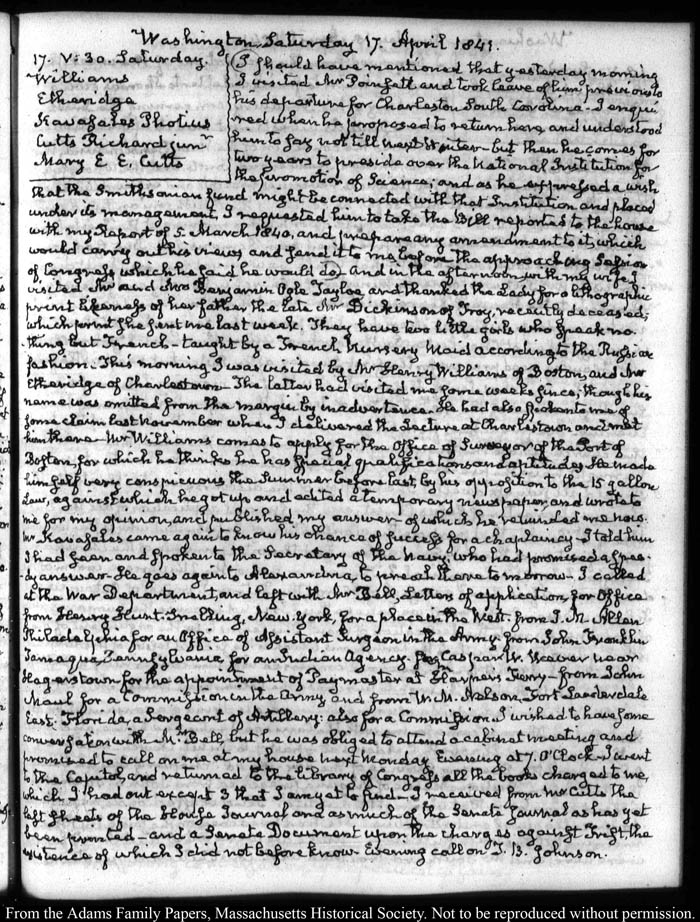 Washington Saturday 17. April 1841.
17. V: 30. Saturday.
Williams
Etheridge
Kavasales Photius
Cutts Richard junr
Mary E. E. Cutts
I should have mentioned that yesterday morning
I visited Mr Poinsett and took leave of him previous to
his departure for Charleston South Carolina - I enqui-
red when he proposed to return here, and understood
him to say not till next Winter - but then he comes for
two years to preside over the National Institution for
the promotion of Science; and as he expressed a wish
that the Smithsonian fund might be connected with that Institution and placed
under its management, I requested him to take the Bill reported to the house
with my Report of 5. March 1840, and prepare any amendment to it, which
would carry out his views and send it to me before the approaching Session
of Congress which he said he would do, And in the afternoon with my wife I
visited Mr and Mrs Benjamin Ogle Tayloe, and thanked the Lady for a lithographic
print likeness of her father the late Mr Dickinson of Troy, recently deceased;
which print she sent me last week. They have two little girls who speak no-
thing but French - taught by a French Nursery Maid according to the Russian
fashion. This morning I was visited by Mr Henry Williams of Boston, and Mr
Etheridge of Charlestown - The latter had visited me some weeks since, though his
name was omitted from the margin by inadvertence. He had also spoken to me of
some claim last November when I delivered the Lecture at Charlestown and met
him there - Mr Williams comes to apply for the Office of Surveyor of the Port of
Boston, for which he thinks he has special qualifications and aptitudes He made
himself very conspicuous the Summer before last, by his opposition to the 15 gallon
Law, against which he got up and edited a temporary newspaper, and wrote to
me for my opinion, and published my answer - of which he reminded me now.
Mr Kavasales came again to know his chance of success for a chaplaincy - I told him
I had seen and spoken to the Secretary of the Navy, who had promised a spee-
dy answer - He goes again to Alexandria, to preach there to morrow - I called
at the War Department, and left with Mr Bell, Letters of application for Office
from Henry Hunt Snelling, New-York, for a place in the West. from J. M. Allen
Philadelphia for an Office of Assistant Surgeon in the Army, from John Franklin
Tamaqua Pennsylvania for an Indian Agency. for Caspar W. Weaver near
Hagerstown for the appointment of Paymaster at Harpers Ferry - from John
Maul for a Commission in the Army and from W. M. Nelson, Fort Lauderdale
East Florida, a Sergeant of Artillery: also for a Commission. I wished to have some
conversation with Mr Bell, but he was obliged to attend a cabinet meeting and
promised to call on me at my house next Monday Evening at 7. O'Clock - I went
to the Capitol, and returned to the library of Congress all the books charged to me,
which I had out except 3 that I am yet to find - I received from Mr Cutts the
last sheets of the House Journal and as much of the Senate Journal as has yet
been printed - and a Senate Document upon the charges against Trist, the
existence of which I did not before know Evening call on J. B. Johnson.
From the Adams Family Papers, Massachusetts Historical Society. Not to be reproduced without permission.